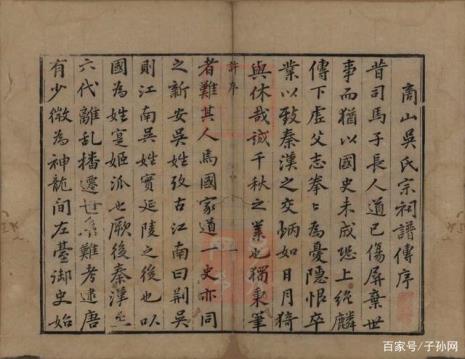 商山吳氏宗祠譜傳序
昔司馬子長人道已傷屏棄世
事而猶以國史未成恐上絕麟
傳下虛父志拳〻為憂隱恨卒
業以致秦漢之交炳如日月猗
與休哉誠千秋之業也獨秉筆
許序
一
者難其人焉國家道一史亦同
之新安吳姓攷古江南曰荆吳
則江南吳姓實延陵之後也以
國為姓寔姬派也厥後秦漢
六代離亂播遷世難考逮唐
有少微為神龍間左臺御史始
百家号/子孙网